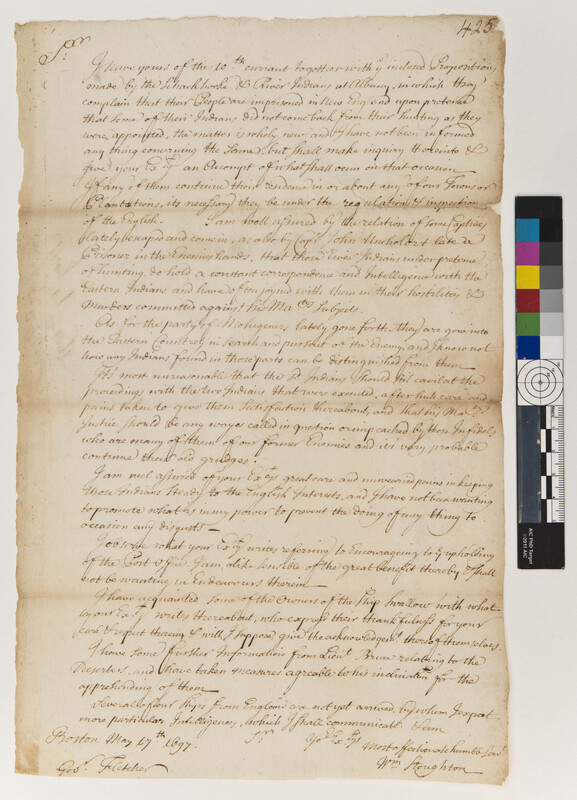 425
Sr
I have yours of the 10th currant together with ye inclosed Propositions
made by the Schackhooke & River Indians at Albany, in which they
complain that their People are imprisoned in New England upon pretence
that some of their Indians did not come back from their hunting as they
were appointed, the matter is wholy new and I have not been informed
any thing concerning the Same, but shall make inquiry thereinto &
give your Excy an Accompt of what shall occur on that occasion
If any of them continue their residence in or about any of our Towns or
Plantations, its necessary they be under the regulation & inspection
of the English. I am well assured by the relation of some Captives
lately escaped and come in, as also by Capt. John late a
Prisoner in the Enemies hands, that those River Indians under pretence
of hunting, do hold a constant correspondence and Intelligence with the
Eastern Indians and have often joyned with them in their hostilitys &
Murders committed against his Matys Subjects.
As for the party of Mohegenes lately gone forth they are gone into
the Eastern Countrey in search and pursuit of the Enemy, and I know not
how any Indians found in those parts can be distinguished from them
It's most unreasonable that the sd Indians should still cavil at the
proceedings with the two Indians that were executed, after such care and
pains taken to give them Satisfaction thereabout, and that his Matys
Justice should be any ways called in question or impeached by those Infidels
who are many of them of our former Enemies and its very probable
continue their old grudges.
I am well assured of your Excys great care and unwearied pains in keeping
those Indians steady to the English Interests, and I have not been wanting
to promote what is in my power to prevent the doing of any thing to
occasion any disgusts
I observe what your Excy writes referring to Encourageing to ye upholding
of the Post Office. I am alike sensible of the great benefit thereby & shall
not be wanting in Endeavours therein
I have acquainted some of the Owners of the Ship Swallow with what
your Excy writes thereabout, who express their thankfulness for your
care & respect therein & will I suppose give the acknowledgemt thereof themselves.
I have some further Information from Lieut Brun relating to the
Deserters, and have taken measures agreeable to his indication for the
apprehending of them
Several of our Ships from England are not yet arrived, by whom I expect
more particular Intelligence, which I shall communicate. I am
Sr Yor Excys
Boston May 17th 1697.
Most affectionate humble Servt
Wm Stoughton
Govr. Fletcher